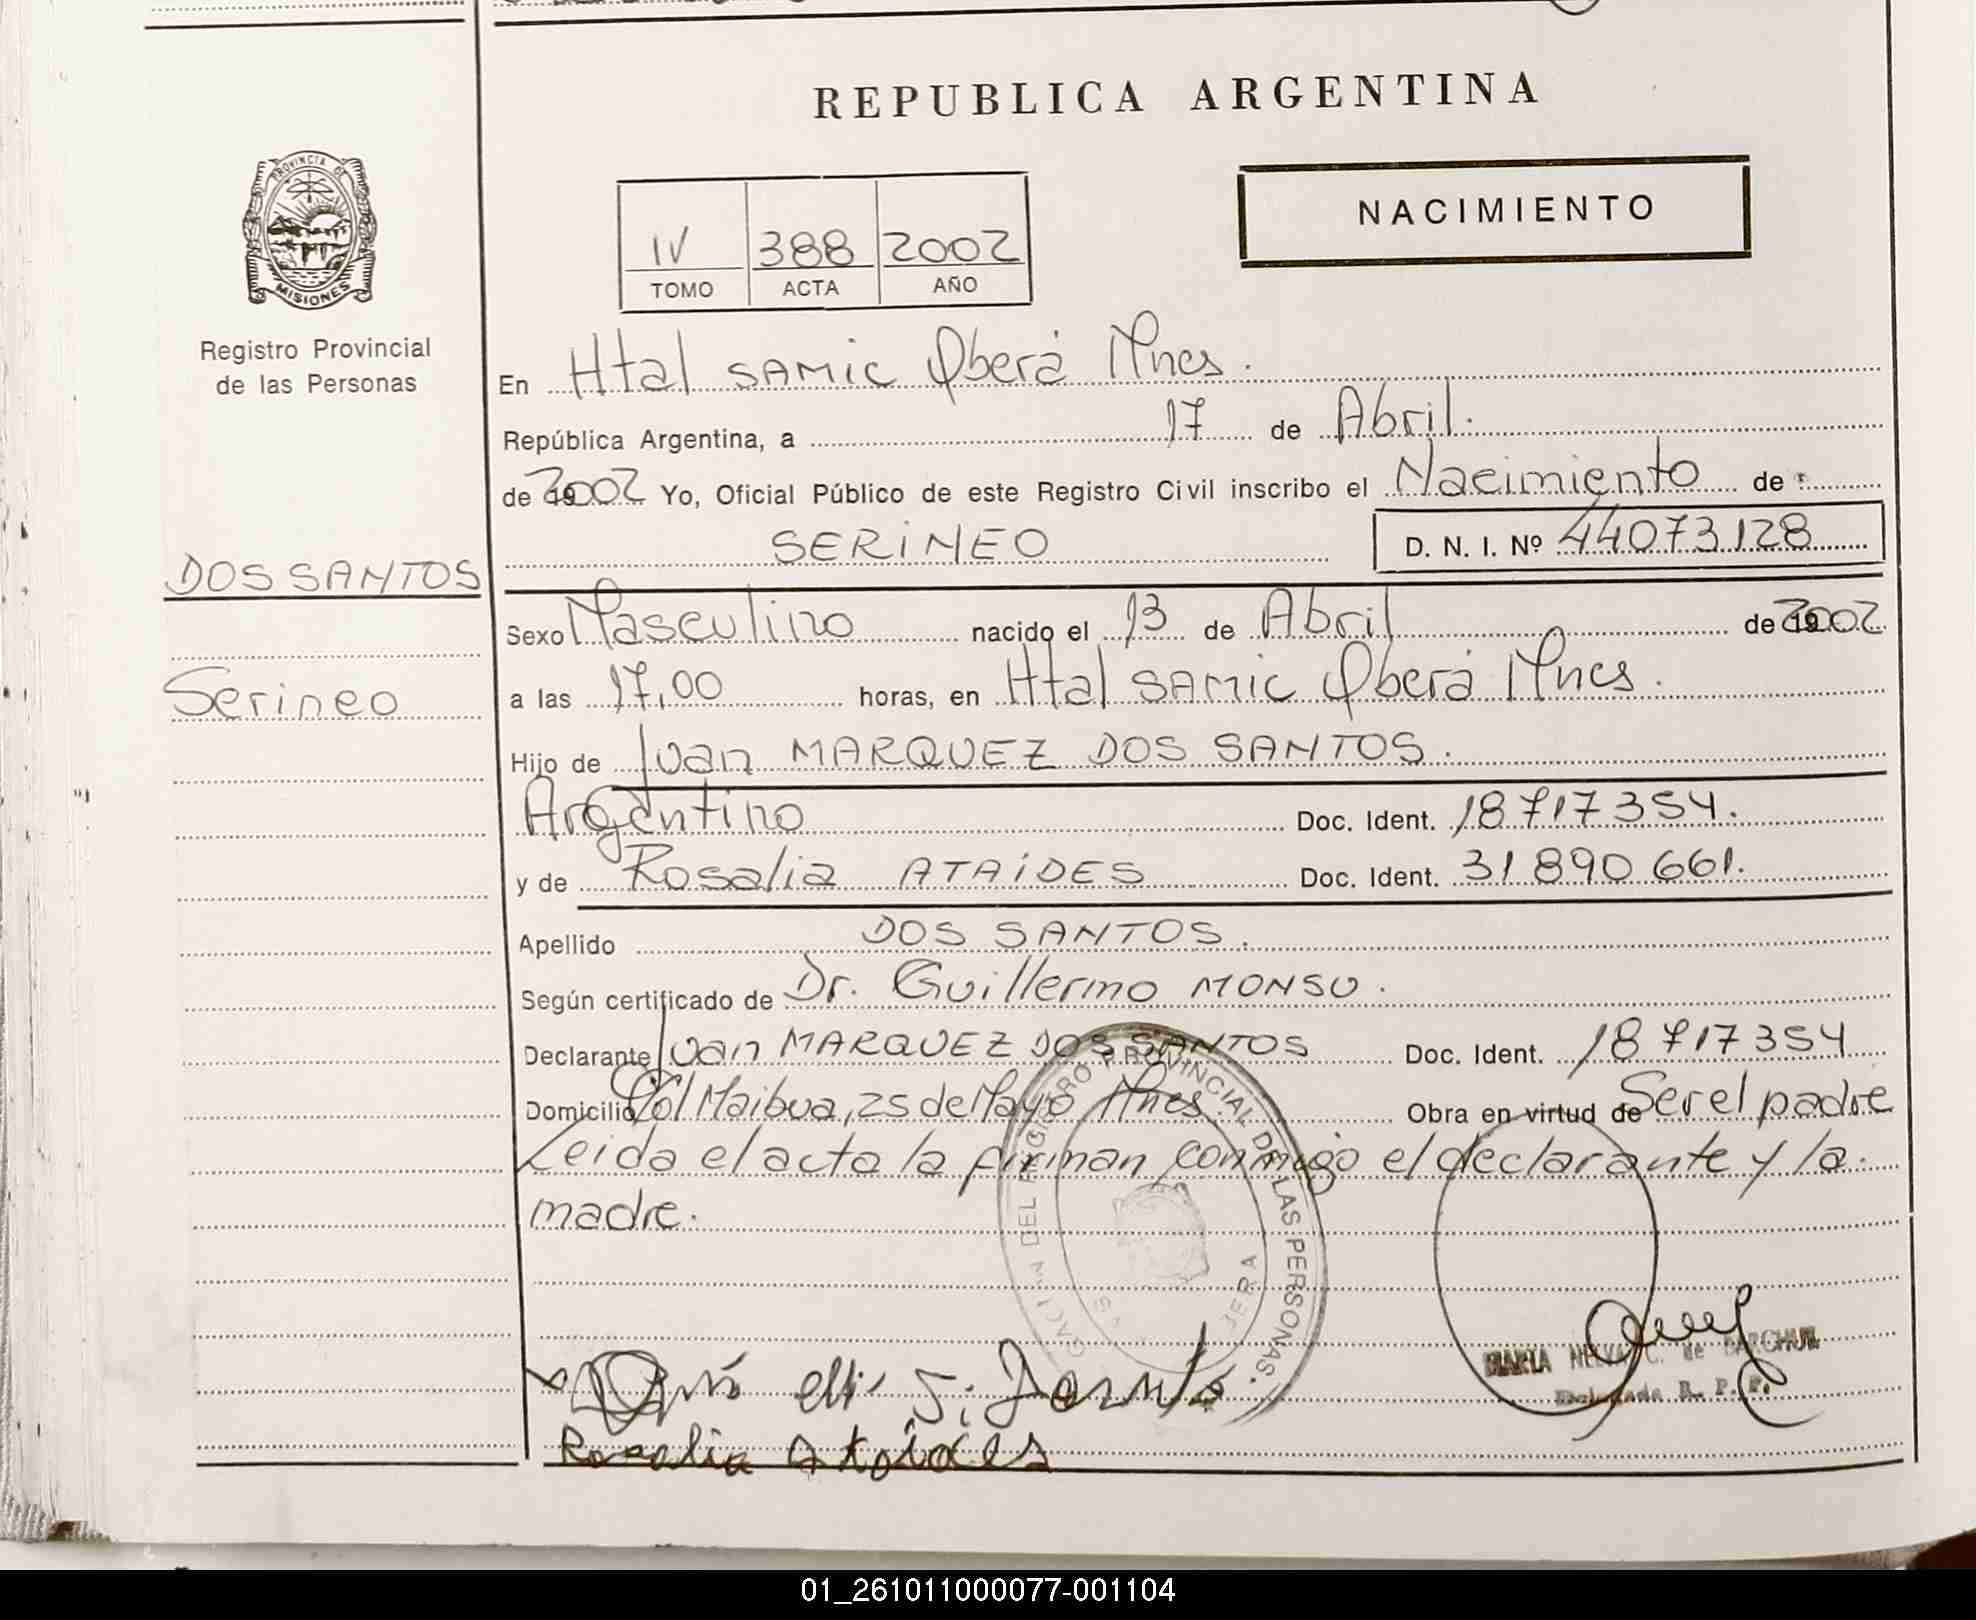 REPUBLICA ARGENTINA
NACIMIENTO
PROVINCIA DE MISIONES
Registro Provincial
de las Personas
IV 388 2002
TOMO ACTA AÑO
En Htal SAMIC Oberá Mnes.
República Argentina, a 17 de Abril.
de 2002 Yo, Oficial Público de este Registro Civil inscribo el Nacimiento de
SERINEO D. N. I. Nº 44073128
DOS SANTOS
Serineo
Sexo Masculino nacido el 13 de Abril de 2002
a las 17,00 horas, en Htal SAMIC Oberá Mnes.
Hijo de Juan MARQUEZ DOS SANTOS.
Argentino Doc. Ident. 18717354.
y de Rosalia ATAIDES Doc. Ident. 31890661.
Apellido DOS SANTOS.
Según certificado de Dr. Guillermo MONSU.
Declarante Juan MARQUEZ DOS SANTOS Doc. Ident. 18717354
Domicilio Col Maibua, 25 de Mayo Mnes. Obra en virtud de Ser el padre
Leida el acta la firman conmigo el declarante y la
madre.
DEL REGISTRO PROVINCIAL DE LAS PERSONAS
MARIA C. de
R. P. P.
Rosalia Ataides
01_261011000077-001104